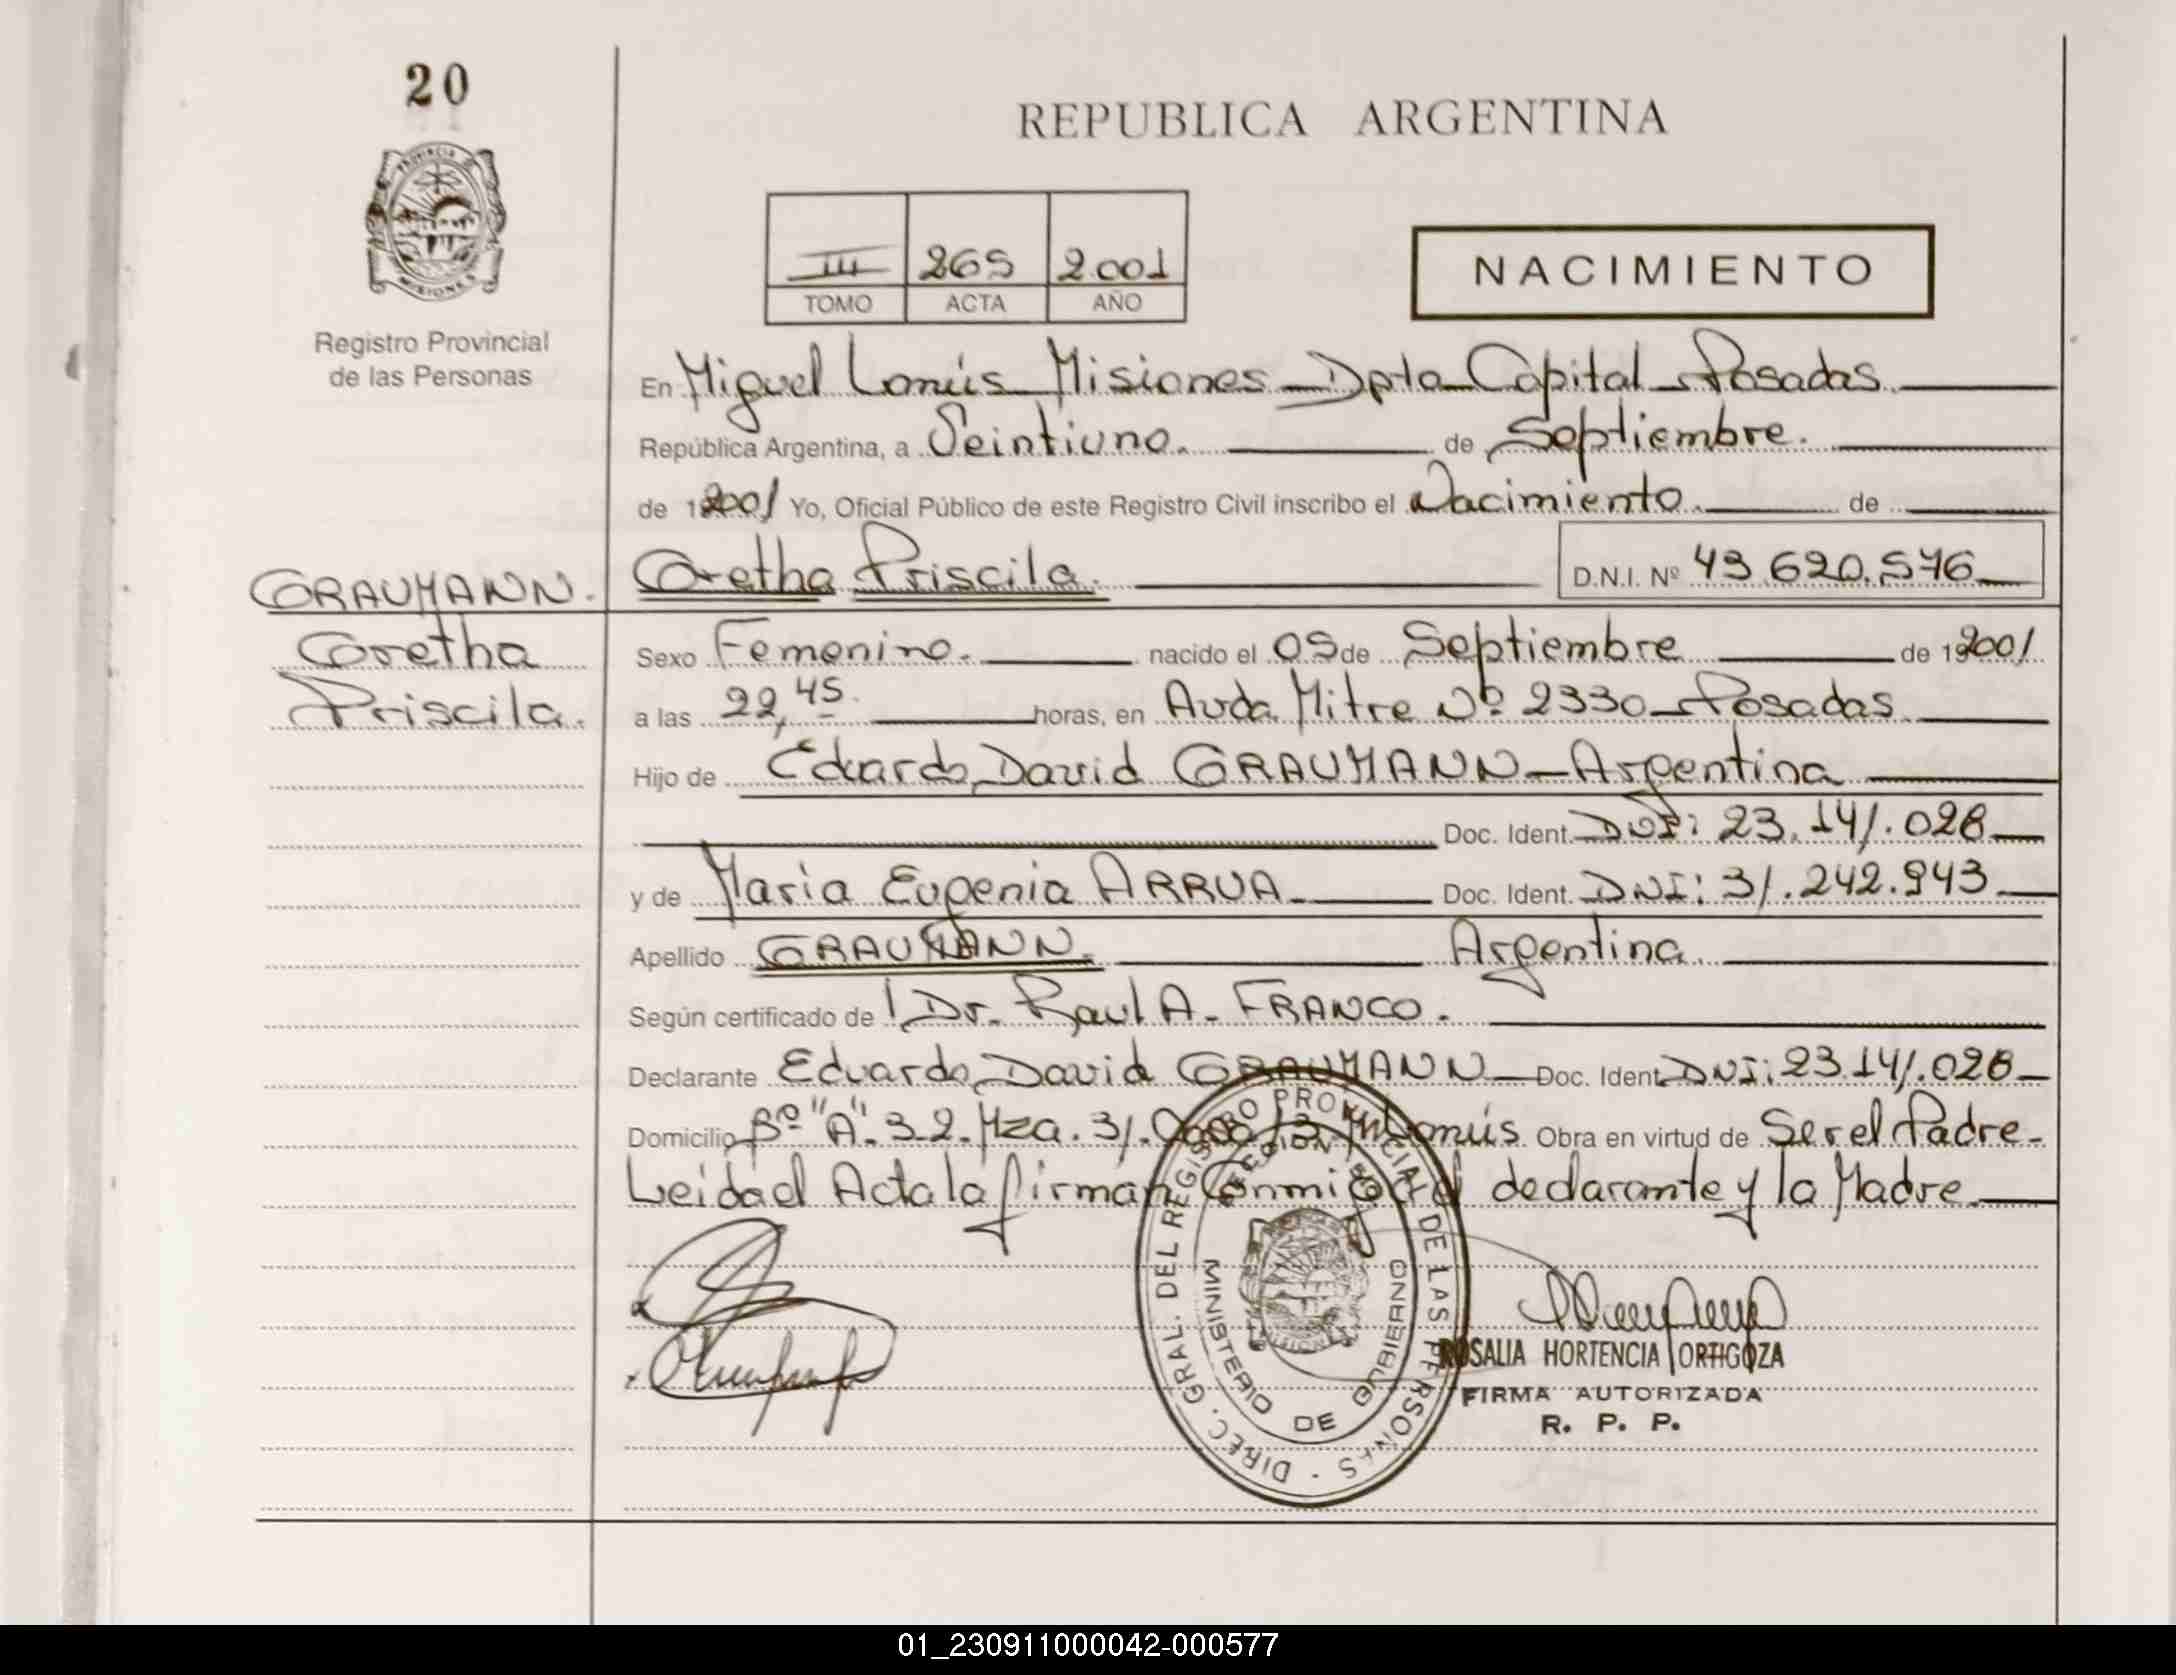 20
REPUBLICA ARGENTINA
PROVINCIA DE
MISIONES
III 265 2.001
TOMO ACTA AÑO
NACIMIENTO
Registro Provincial
de las Personas
En Miguel Lanús Misiones Dpto Capital Posadas.
República Argentina, a Veintiuno. de Septiembre.
de 2001 Yo, Oficial Público de este Registro Civil inscribo el Nacimiento de
GRAUMANN. Gretha Priscila. D.N.I. Nº 43.620.576
Gretha
Priscila.
Sexo Femenino. nacido el 05 de Septiembre de 2001
a las 22,45 horas, en Avda. Mitre Nº 2330 Posadas
Hijo de Eduardo David GRAUMANN - Argentina
Doc. Ident. DNI: 23.141.028
y de Maria Eugenia ARRUA Doc. Ident. DNI: 31.242.943
Apellido GRAUMANN. Argentina
Según certificado de Dr. Raul A. FRANCO.
Declarante Eduardo David GRAUMANN Doc. Ident. DNI: 23.141.028
Domicilio Bº "A".3.2. Mza. 31. Lanús Obra en virtud de Ser el Padre.
Leida el Acta la firman Conmigo el declarante y la Madre.
DIREC. GRAL. DEL REGISTRO PROVINCIAL DE LAS PERSONAS
MINISTERIO DE GOBIERNO
ROSALIA HORTENCIA ORTIGOZA
FIRMA AUTORIZADA
R. P. P.
01_230911000042-000577